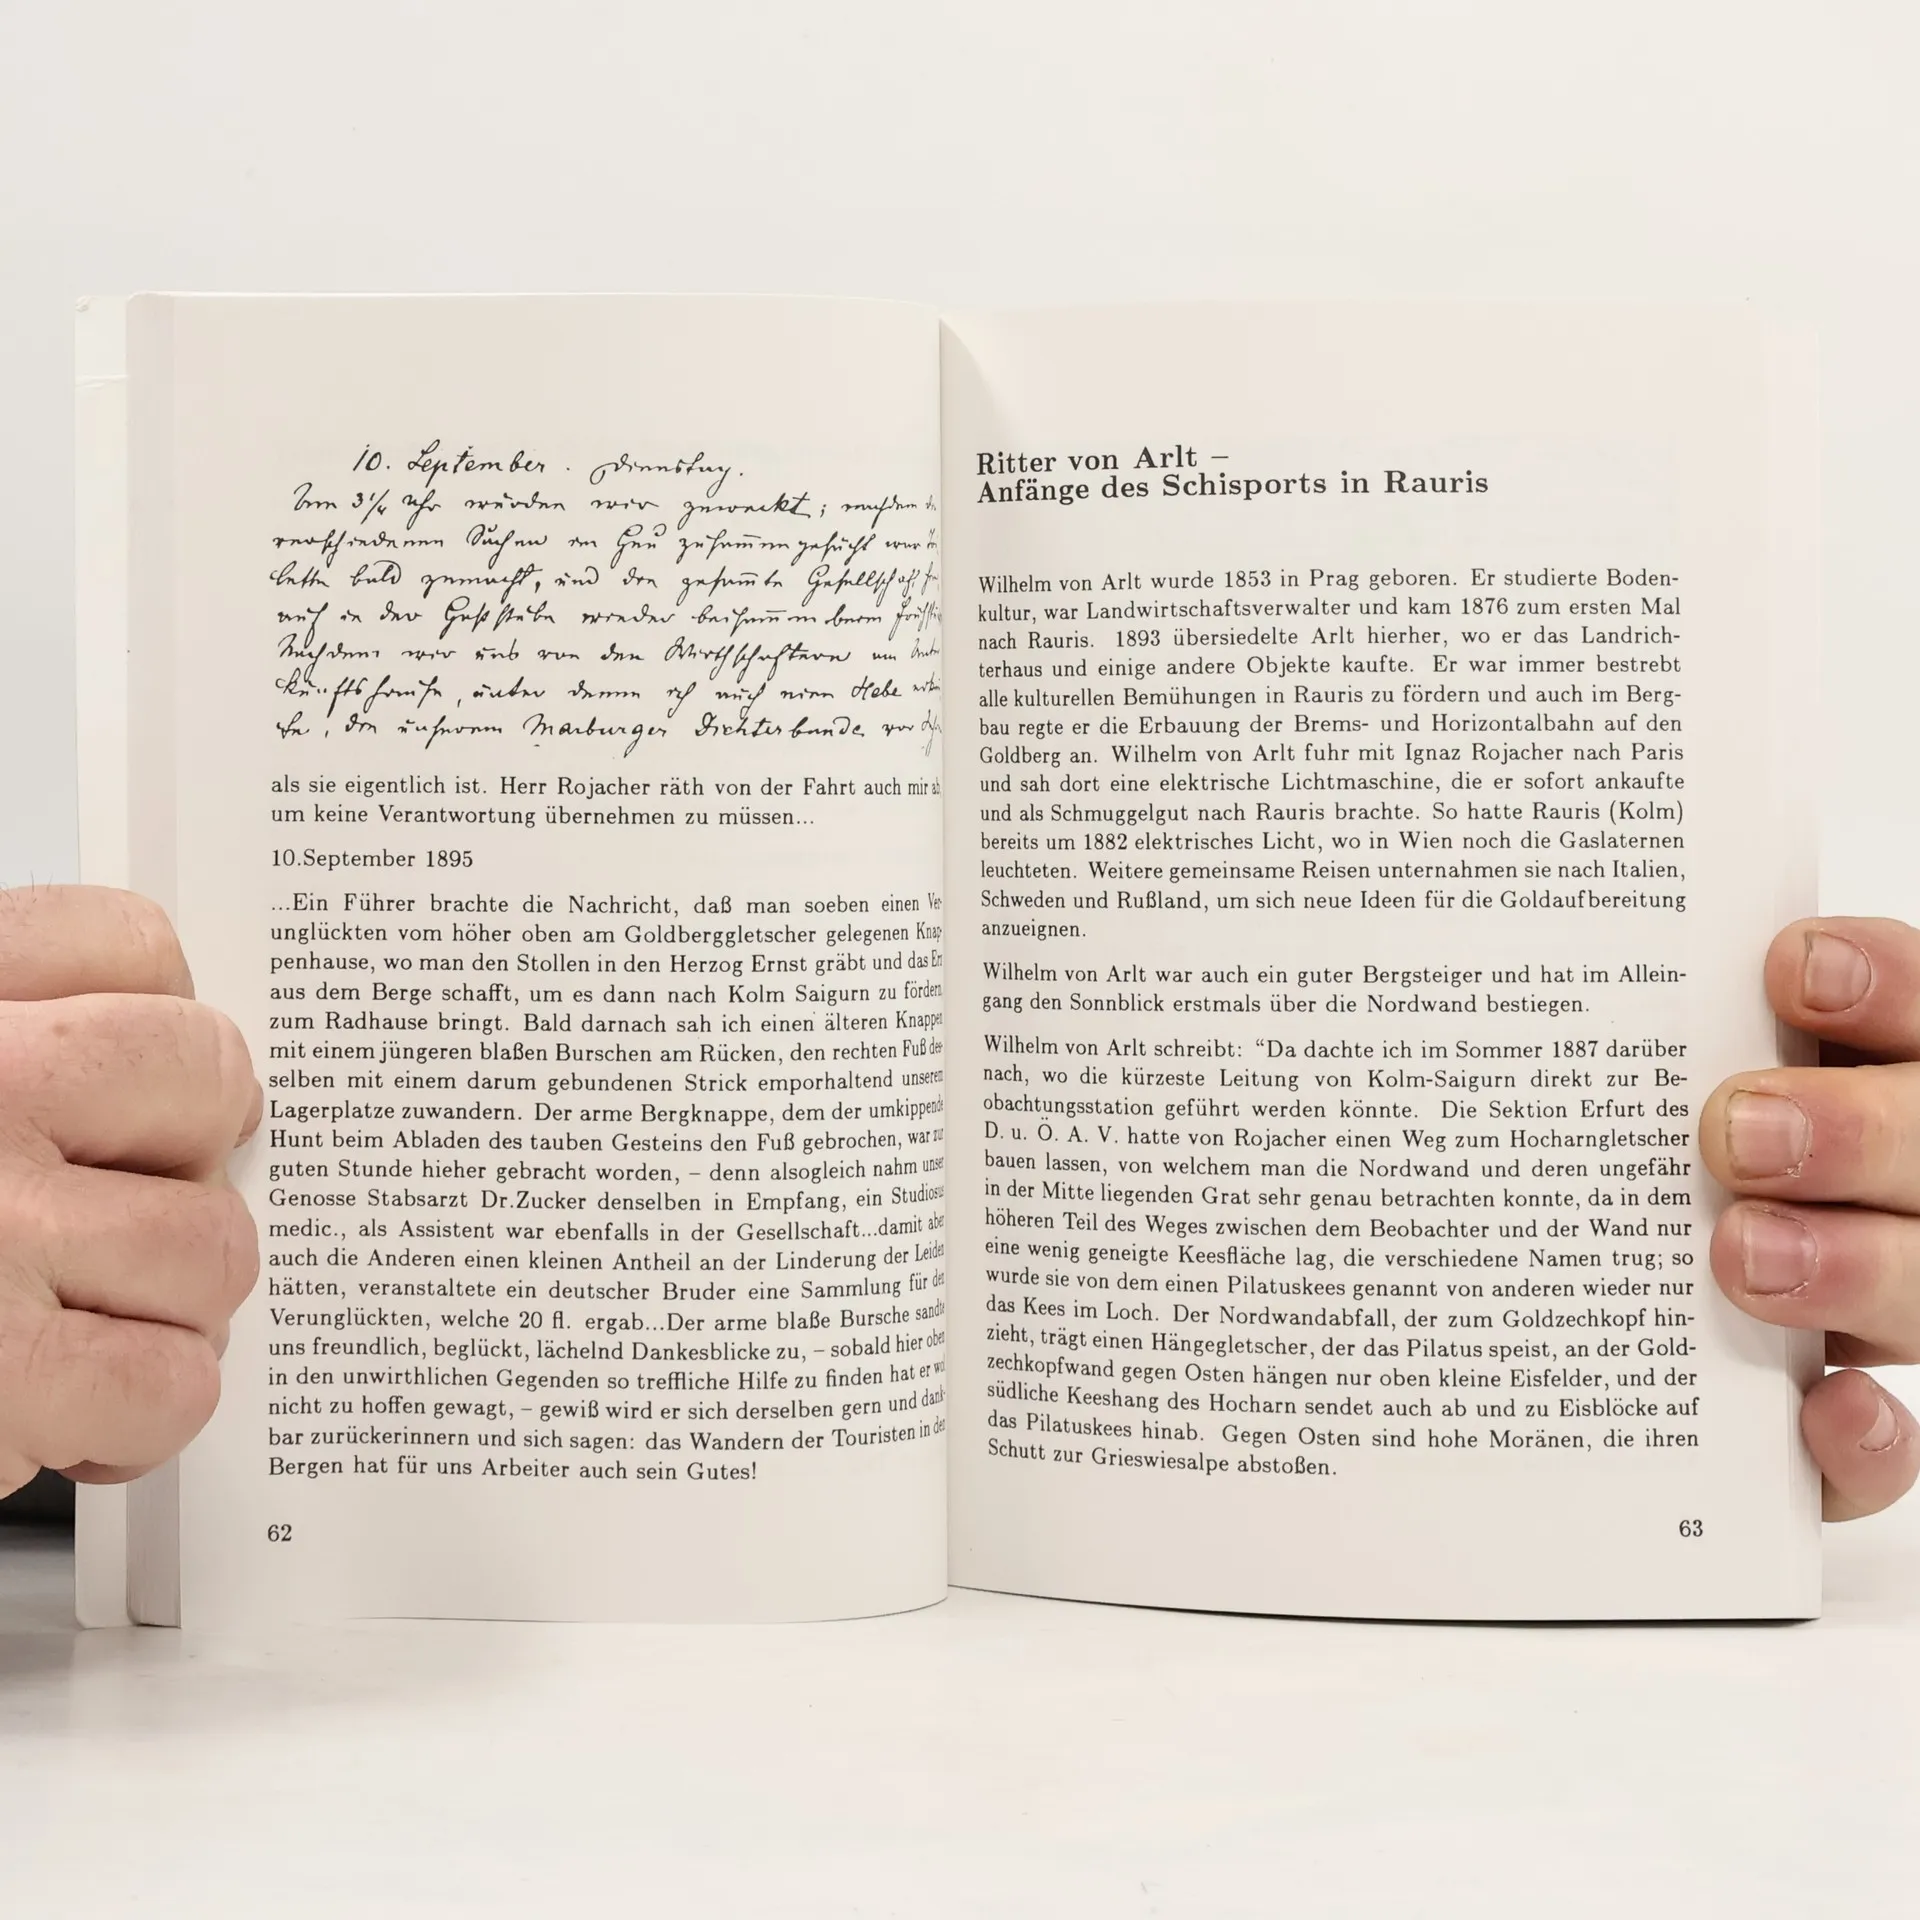 10. September. Dienstag.
Um 3¼ Uhr wurden wir geweckt; nachdem
verschiedenen Sachen im Heu zusammengesucht war
lette bald gemacht, und die gesammte Gesellschaft
auf in der Gaststube wieder beisammen beim
Nachdem wir uns von den Wirthschaftern im
kunftshause, unter denen ich auch eine Hebe
die unserem Marburger Dichterbunde vor
als sie eigentlich ist. Herr Rojacher räth von der Fahrt auch mir ab,
um keine Verantwortung übernehmen zu müssen...
10.September 1895
...Ein Führer brachte die Nachricht, daß man soeben einen Ver-
unglückten vom höher oben am Goldberggletscher gelegenen Knap-
penhause, wo man den Stollen in den Herzog Ernst gräbt und das Erz
aus dem Berge schafft, um es dann nach Kolm Saigurn zu fördern,
zum Radhause bringt. Bald darnach sah ich einen älteren Knappen
mit einem jüngeren blaßen Burschen am Rücken, den rechten Fuß des-
selben mit einem darum gebundenen Strick emporhaltend unserem
Lagerplatze zuwandern. Der arme Bergknappe, dem der umkippende
Hunt beim Abladen des tauben Gesteins den Fuß gebrochen, war zur
guten Stunde hieher gebracht worden, – denn alsogleich nahm unser
Genosse Stabsarzt Dr.Zucker denselben in Empfang, ein Studiosus
medic., als Assistent war ebenfalls in der Gesellschaft...damit aber
auch die Anderen einen kleinen Antheil an der Linderung der Leiden
hätten, veranstaltete ein deutscher Bruder eine Sammlung für den
Verunglückten, welche 20 fl. ergab...Der arme blaße Bursche sandte
uns freundlich, beglückt, lächelnd Dankesblicke zu, – sobald hier oben
in den unwirthlichen Gegenden so treffliche Hilfe zu finden hat er wol
nicht zu hoffen gewagt, – gewiß wird er sich derselben gern und dank-
bar zurückerinnern und sich sagen: das Wandern der Touristen in den
Bergen hat für uns Arbeiter auch sein Gutes!
62
Ritter von Arlt –
Anfänge des Schisports in Rauris
Wilhelm von Arlt wurde 1853 in Prag geboren. Er studierte Boden-
kultur, war Landwirtschaftsverwalter und kam 1876 zum ersten Mal
nach Rauris. 1893 übersiedelte Arlt hierher, wo er das Landrich-
terhaus und einige andere Objekte kaufte. Er war immer bestrebt
alle kulturellen Bemühungen in Rauris zu fördern und auch im Berg-
bau regte er die Erbauung der Brems- und Horizontalbahn auf den
Goldberg an. Wilhelm von Arlt fuhr mit Ignaz Rojacher nach Paris
und sah dort eine elektrische Lichtmaschine, die er sofort ankaufte
und als Schmuggelgut nach Rauris brachte. So hatte Rauris (Kolm)
bereits um 1882 elektrisches Licht, wo in Wien noch die Gaslaternen
leuchteten. Weitere gemeinsame Reisen unternahmen sie nach Italien,
Schweden und Rußland, um sich neue Ideen für die Goldaufbereitung
anzueignen.
Wilhelm von Arlt war auch ein guter Bergsteiger und hat im Allein-
gang den Sonnblick erstmals über die Nordwand bestiegen.
Wilhelm von Arlt schreibt: “Da dachte ich im Sommer 1887 darüber
nach, wo die kürzeste Leitung von Kolm-Saigurn direkt zur Be-
obachtungsstation geführt werden könnte. Die Sektion Erfurt des
D. u. Ö. A. V. hatte von Rojacher einen Weg zum Hocharngletscher
bauen lassen, von welchem man die Nordwand und deren ungefähr
in der Mitte liegenden Grat sehr genau betrachten konnte, da in dem
höheren Teil des Weges zwischen dem Beobachter und der Wand nur
eine wenig geneigte Keesfläche lag, die verschiedene Namen trug; so
wurde sie von dem einen Pilatuskees genannt von anderen wieder nur
das Kees im Loch. Der Nordwandabfall, der zum Goldzechkopf hin-
zieht, trägt einen Hängegletscher, der das Pilatus speist, an der Gold-
zechkopfwand gegen Osten hängen nur oben kleine Eisfelder, und der
südliche Keeshang des Hocharn sendet auch ab und zu Eisblöcke auf
das Pilatuskees hinab. Gegen Osten sind hohe Moränen, die ihren
Schutt zur Grieswiesalpe abstoßen.
63